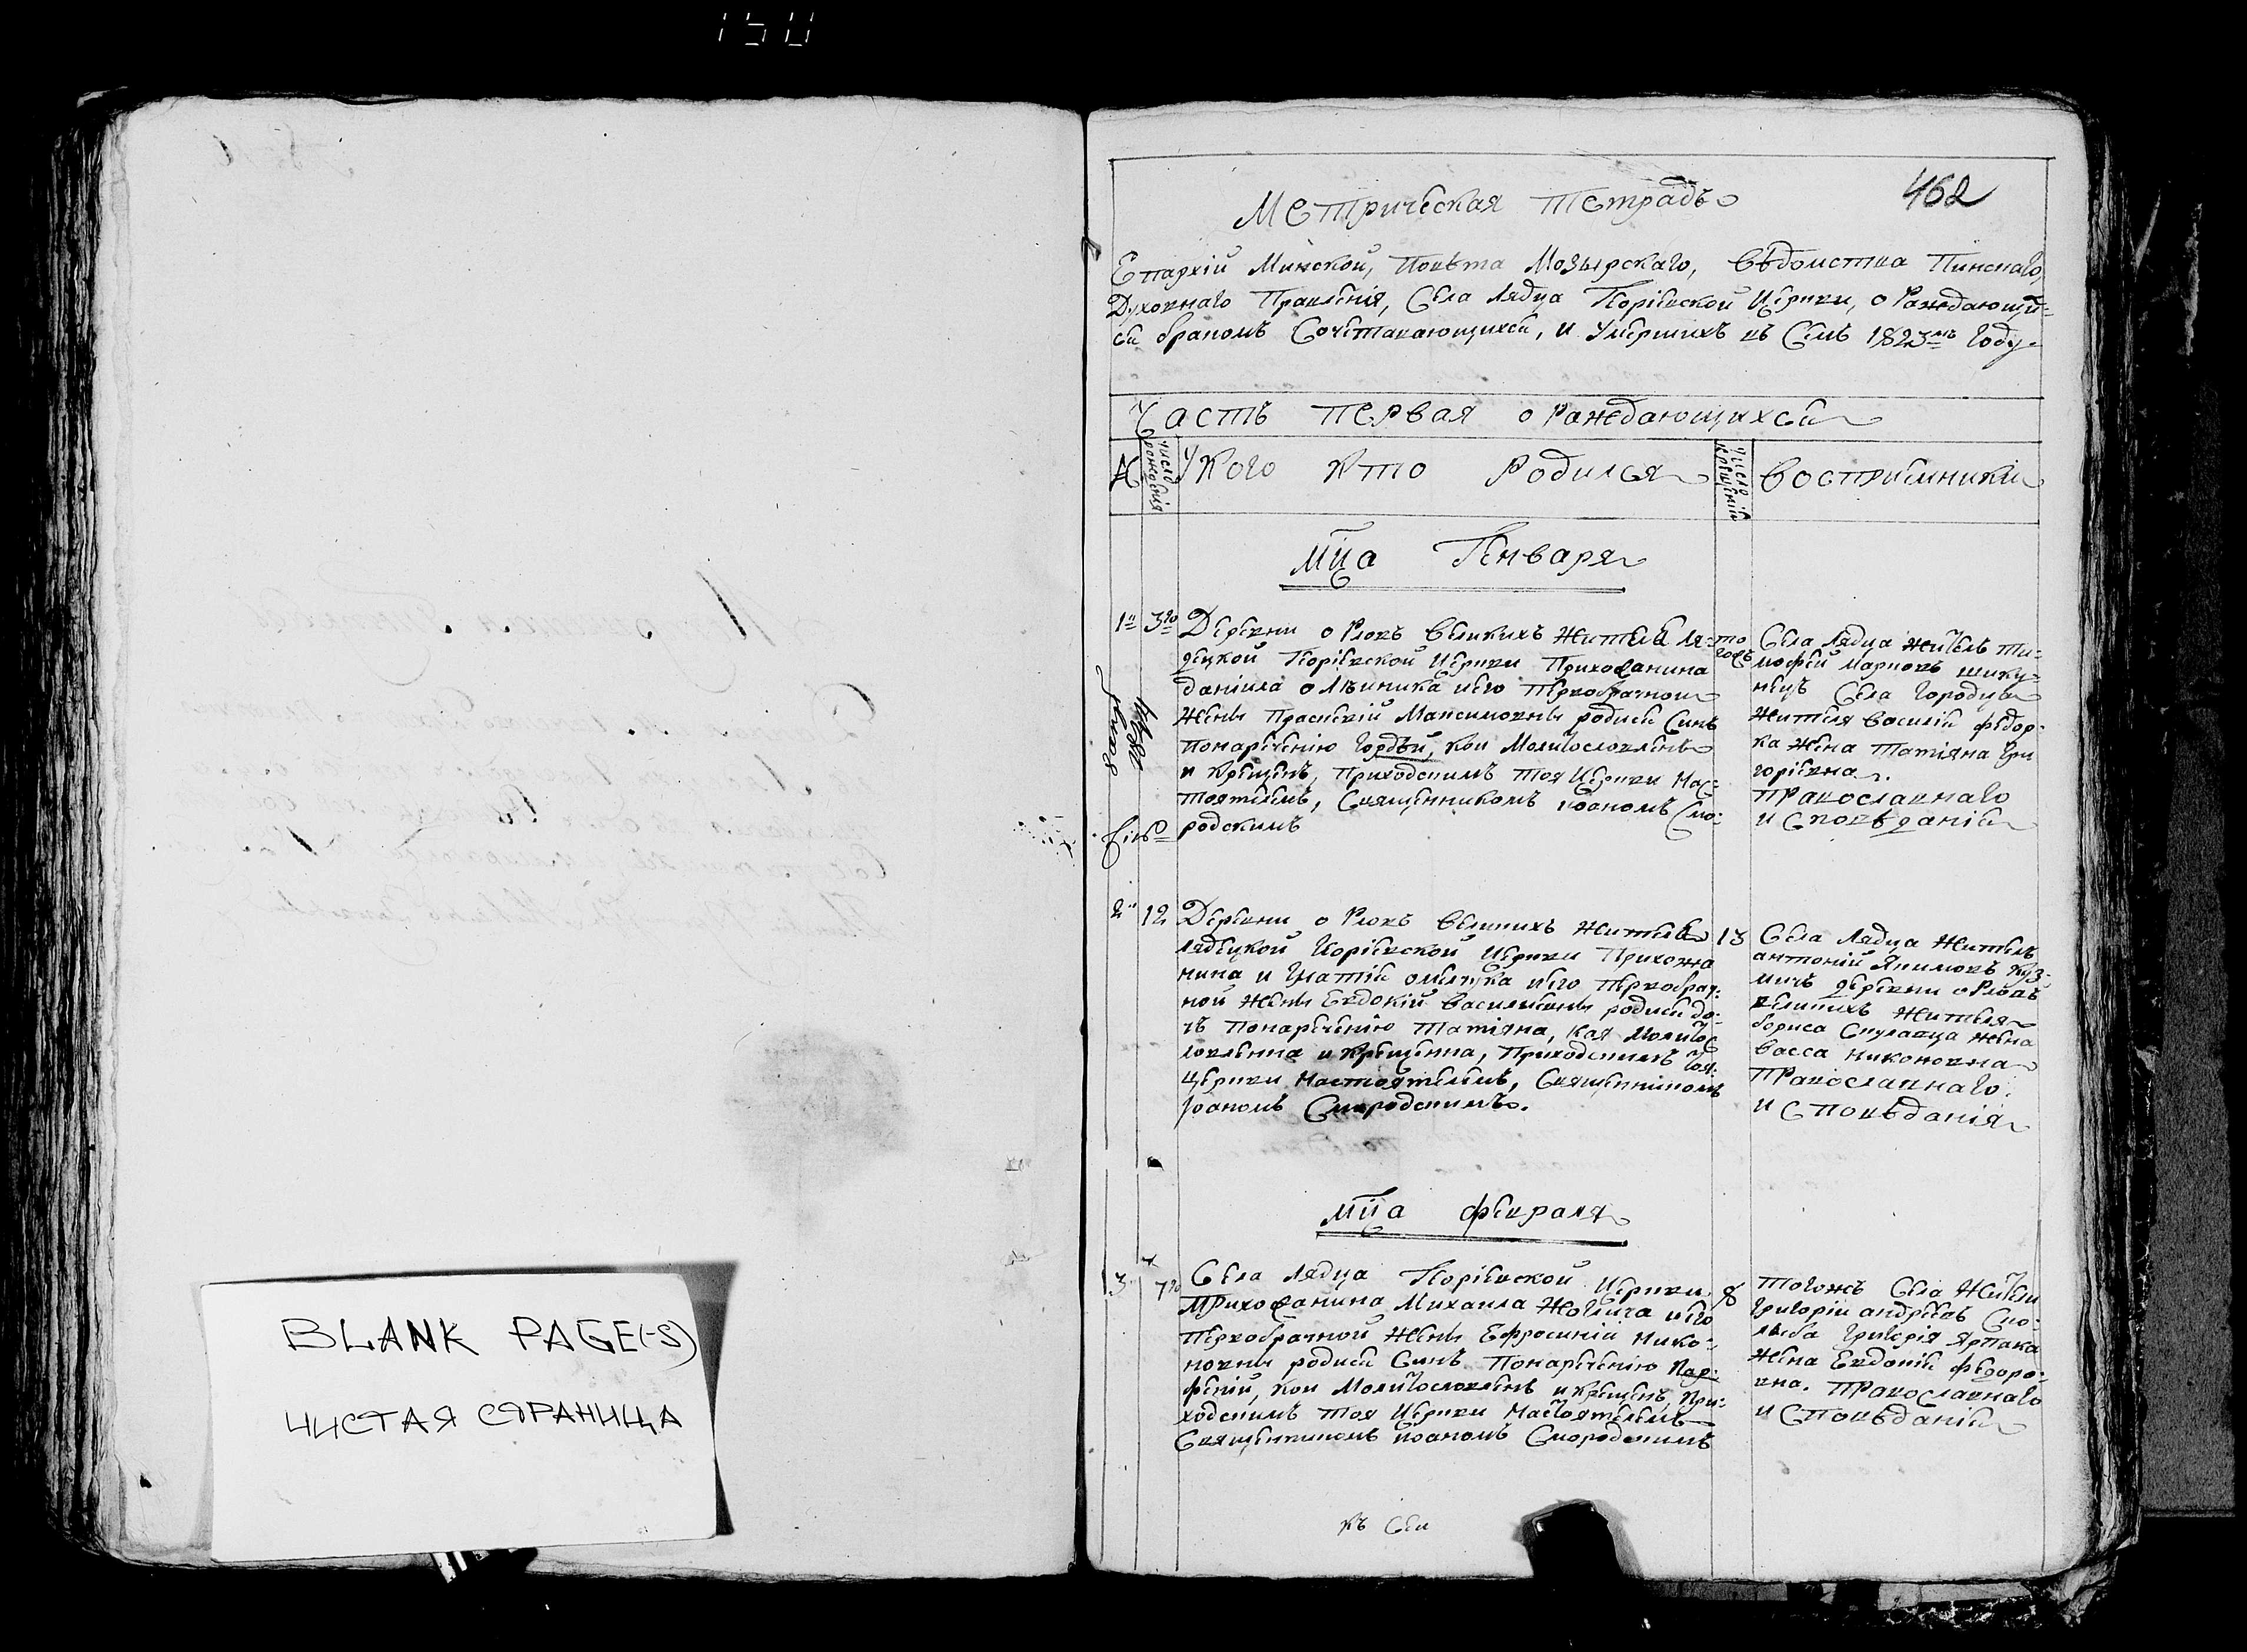 150
BLANK PAGE(-S)
ЧИСТАЯ СТРАНИЦА
462
Метрическая тетрадь
Епархіи Минской, Повѣта Мозырскаго, вѣдомства Пинскаго,
Духовнаго Правленія, Села Лядца Георіевской Церкви, о Раждающих-
ся бракомъ Сочетавающихся, и Умершихъ въ Семъ 1823мъ Году
Часть первая о Раждающихся
№ число рожденія У Кого Кто Родился число крещенія Восприемники
Мц̃а Генваря
1 3го Деревни оРловъ Великихъ Жителя Ля-
децкой Георіевской Церкви Прихожанина
Даніила и его Первобрачной
Жены Праскевіи Максимовны родися Сынъ
понаречению Гордѣй, кои Молитвословленъ
и Крещенъ, Приходскимъ тоя Церкви Нас-
тоятелемъ, Священникомъ Иоаномъ Смо-
родскимъ
тогожъ
Села Лядца Житель Ти-
мофей Марковъ
Села Городца
Жителя Василія Федор-
ка Жена Татіяна Гри
горіевна.
Православнаго
исповѣданія
2 12 Деревни оРловъ Великихъ Жителя
Лядецкой Георіевской Церкви Прихожа
нина Игнатія Омелчука и его Первобрач-
ной Жены Евдокіи Василиевны родися до-
чь понаречению Татіяна, кая Молитвос
ловленна и Крещенна, Приходскимъ тоя
Церкви Настоятелемъ, Священникомъ
Иоаномъ Смородскимъ.
13
Села Лядца Житель
Антоній Якимовъ Куз-
мичъ деревни оРловъ
великихъ Жителя
Бориса Скулавца Жена
Васса Никоновна
Православнаго
исповѣданія
Мц̃а Февраля
3 7го Села Лядца Георіевской Церкви
Прихожанина Михаила и его
Первобрачной Жены Ефросиніи Нико-
новны родися Сынъ Понаречению Пар-
феній, кои Молитвословленъ и Крещенъ, При-
ходскимъ тоя Церкви Настоятелемъ
Священникомъ Иоаномъ Смородскимъ
8
тогожъ Села Жители
Григорій Андреевъ Смо-
Григорія Ярпака
Жена Евдокія Федоро-
вна. Православнаго
исповѣданія
къ Сей